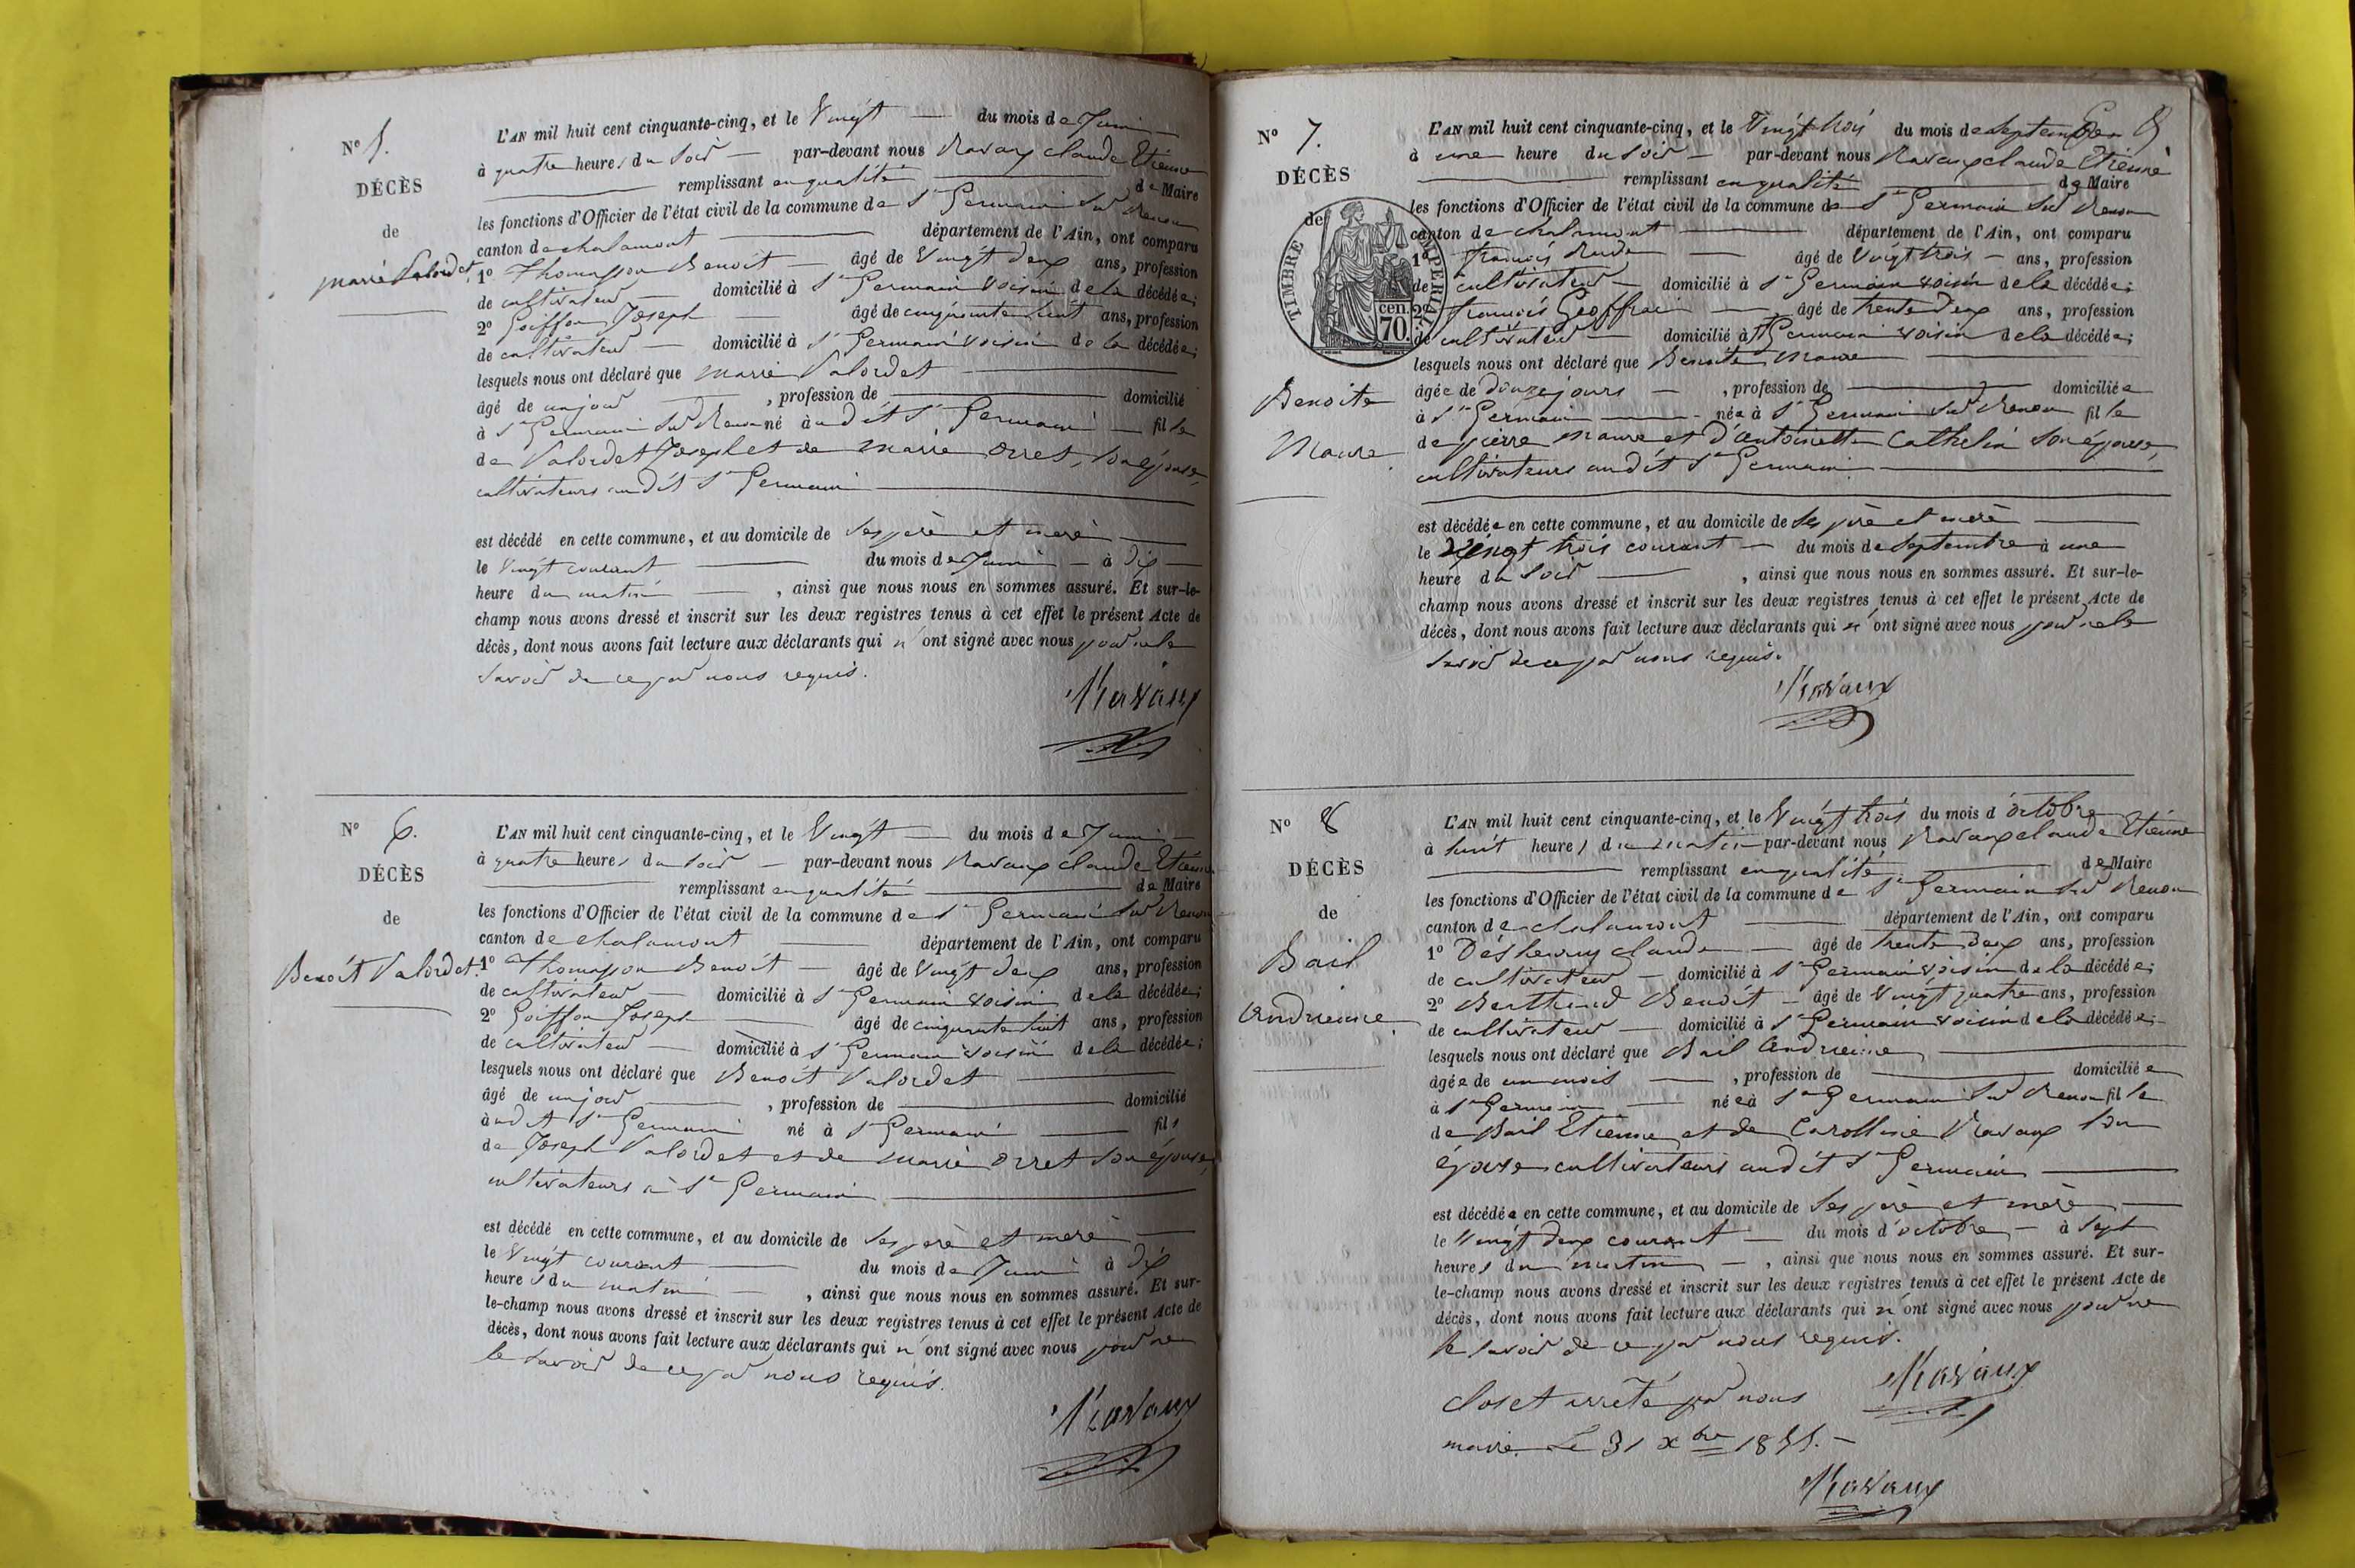 N° 5.
DÉCÈS
de
marie Valordet,
L'AN mil huit cent cinquante-cinq, et le Vingt du mois de Juin
à quatre heures du Soir par-devant nous Ravaux claude Etienne
remplissant en qualité de Maire
les fonctions d'Officier de l'état civil de la commune de St Germain Sur Renon
canton de chalamont département de l'Ain, ont comparu
1° Thomasson Benoit âgé de Vingt deux ans, profession
de cultivateur domicilié à St Germain voisin de la décédée;
2° Goiffon Joseph âgé de cinquante huit ans, profession
de cultivateur domicilié à St Germain voisin de la décédée;
lesquels nous ont déclaré que marie Valordet
âgé de un jour , profession de domicilié
à St Germain Sur Renon né à udit St Germain fille
de Valordet Joseph et de marie orret, Son épouse,
cultivateurs audit St Germain
est décédé en cette commune, et au domicile de Ses père et mere
le Vingt courant du mois de Juin à dix
heure du matin , ainsi que nous nous en sommes assuré. Et sur-le-
champ nous avons dressé et inscrit sur les deux registres tenus à cet effet le présent Acte de
décès, dont nous avons fait lecture aux déclarants qui n'ont signé avec nous pour ne le
Savoir de ce par nous requis.
Ravaux
N° 6.
DÉCÈS
de
Benoit Valordet.
L'AN mil huit cent cinquante-cinq, et le Vingt du mois de Juin
à quatre heures du Soir par-devant nous Ravaux claude Etienne
remplissant en qualité de Maire
les fonctions d'Officier de l'état civil de la commune de St Germain Sur Renon
canton de chalamont département de l'Ain, ont comparu
1° Thomasson Benoit âgé de Vingt deux ans, profession
de cultivateur domicilié à St Germain voisin de la décédée;
2° Goiffon Joseph âgé de cinquante huit ans, profession
de cultivateur domicilié à St Germain voisin de la décédée;
lesquels nous ont déclaré que Benoit Valordet
âgé de un jour , profession de domicilié
à udit St Germain né à St Germain fils
de Joseph Valordet et de marie orret Son épouse,
cultivateurs à St Germain
est décédé en cette commune, et au domicile de Ses père et mere
le Vingt courant du mois de Juin à dix
heures du matin , ainsi que nous nous en sommes assuré. Et sur-
le-champ nous avons dressé et inscrit sur les deux registres tenus à cet effet le présent Acte de
décès, dont nous avons fait lecture aux déclarants qui n'ont signé avec nous pour ne
le Savoir de ce par nous requis.
Ravaux
N° 7.
DÉCÈS
de
TIMBRE IMPERIAL
cen. 70.
Benoite
Maure
L'AN mil huit cent cinquante-cinq, et le Vingt trois du mois de Septembre
à une heure du Soir par-devant nous Ravaux claude Etienne
remplissant en qualité de Maire
les fonctions d'Officier de l'état civil de la commune de St Germain Sur Renon
canton de chalamont département de l'Ain, ont comparu
1° francois Rude âgé de Vingt trois ans, profession
de cultivateur domicilié à St Germain voisin de la décédée;
2° francois Geoffrai âgé de trente deux ans, profession
de cultivateur domicilié à St Germain voisin de la décédée;
lesquels nous ont déclaré que Benoite Maure
âgée de douze jours , profession de domiciliée
à St Germain née à St Germain Sur Renon fille
de pierre maure et d'antoinette Cathelin Son épouse,
cultivateurs audit St Germain
est décédée en cette commune, et au domicile de Ses père et mere
le Vingt trois courant du mois de Septembre à une
heure du Soir , ainsi que nous nous en sommes assuré. Et sur-le-
champ nous avons dressé et inscrit sur les deux registres tenus à cet effet le présent Acte de
décès, dont nous avons fait lecture aux déclarants qui n'ont signé avec nous pour ne le
Savoir de ce par nous requis.
Ravaux
N° 8
DÉCÈS
de
Bail
Andrienne
L'AN mil huit cent cinquante-cinq, et le Vingt trois du mois d'octobre
à huit heures du matin par-devant nous Ravaux claude Etienne
remplissant en qualité de Maire
les fonctions d'Officier de l'état civil de la commune de St Germain Sur Renon
canton de chalamont département de l'Ain, ont comparu
1° claude âgé de trente deux ans, profession
de cultivateur domicilié à St Germain voisin de la décédée;
2° Berthaud Benoit âgé de Vingt quatre ans, profession
de cultivateur domicilié à St Germain voisin de la décédée;
lesquels nous ont déclaré que Bail Andrienne
âgée de un mois , profession de domiciliée
à St Germain née à St Germain Sur Renon fille
de Bail Etienne et de Carolline Ravaux Son
épouse cultivateurs audit St Germain
est décédée en cette commune, et au domicile de Ses père et mère
le Vingt deux courant du mois d'octobre à Sept
heures du matin , ainsi que nous nous en sommes assuré. Et sur-
le-champ nous avons dressé et inscrit sur les deux registres tenus à cet effet le présent Acte de
décès, dont nous avons fait lecture aux déclarants qui n'ont signé avec nous pour ne
le Savoir de ce par nous requis.
Ravaux
Clos et arrêté par nous
maire Le 31 xbre 1855.
Ravaux